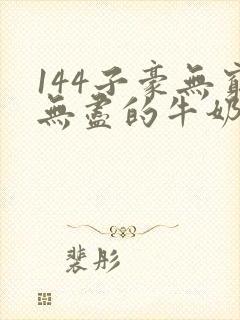 144子豪無窮
無盡的牛奶
裴彤